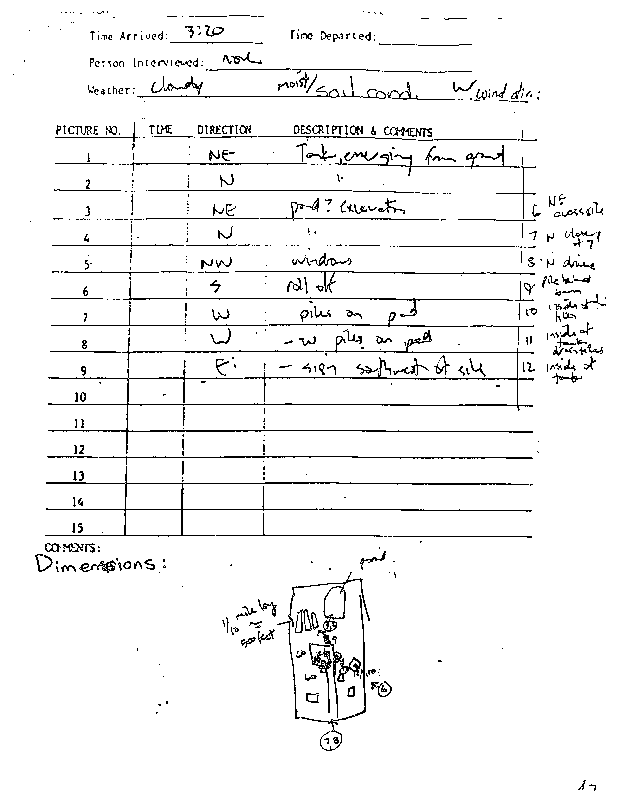 Time Arrived: 3:20 Time Departed:
Person Interviewed: None
Weather: Cloudy moist/soil cond. W wind dir:
PICTURE NO. TIME DIRECTION DESCRIPTION & COMMENTS
1 NE Tank, emerging from ground
2 N "
3 NE pond? excavation
6 NE across site
4 N "
7 N closeup of 7
5 NW windows
8 N drums
6 S roll off
9
7 W piles on pad
10 inside of
8 W - W piles on pad
11 inside of
9 E - sign southwest of site
12 inside of tank
10
11
12
13
14
15
COMMENTS:
Dimensions:
pond
1/10 mile long
≈
500 feet
60
60
6
7,8